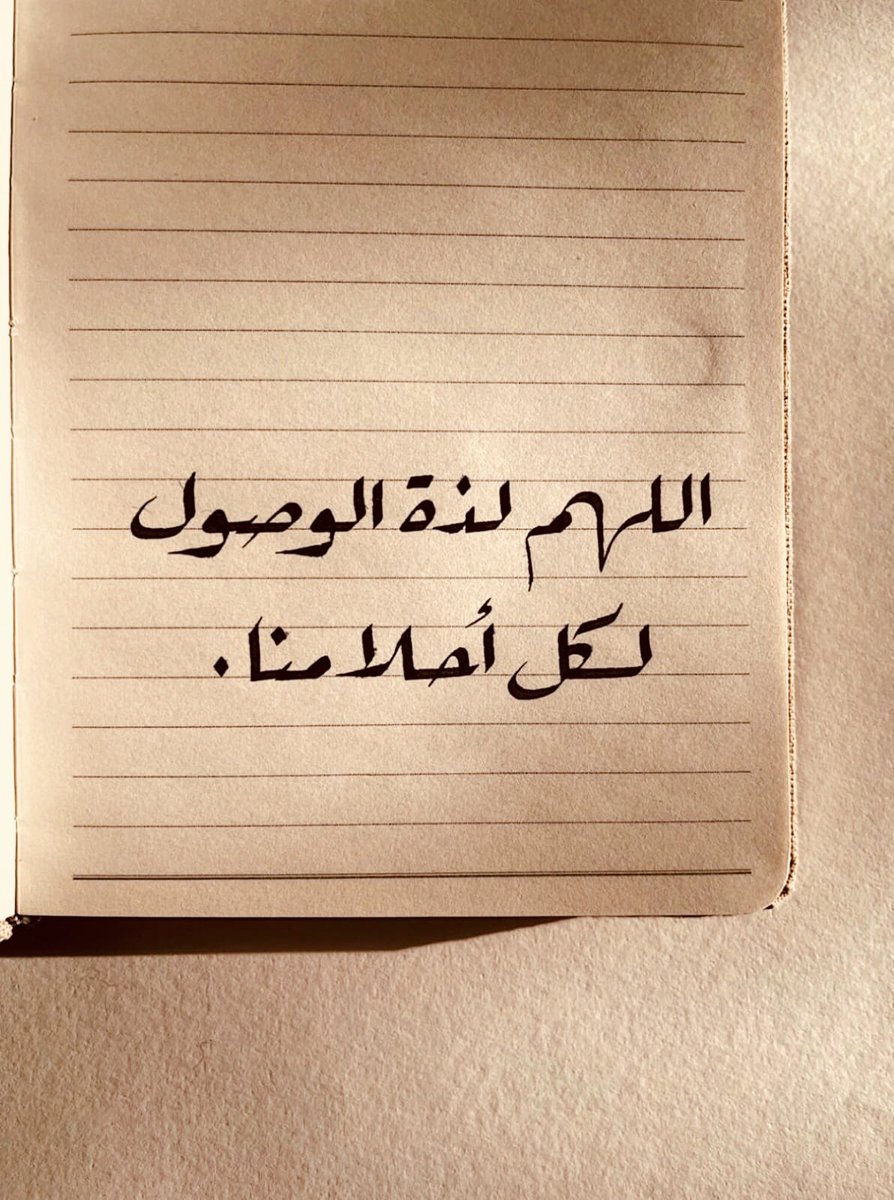 اللهم لذة الوصول
لكل أحلامنا.